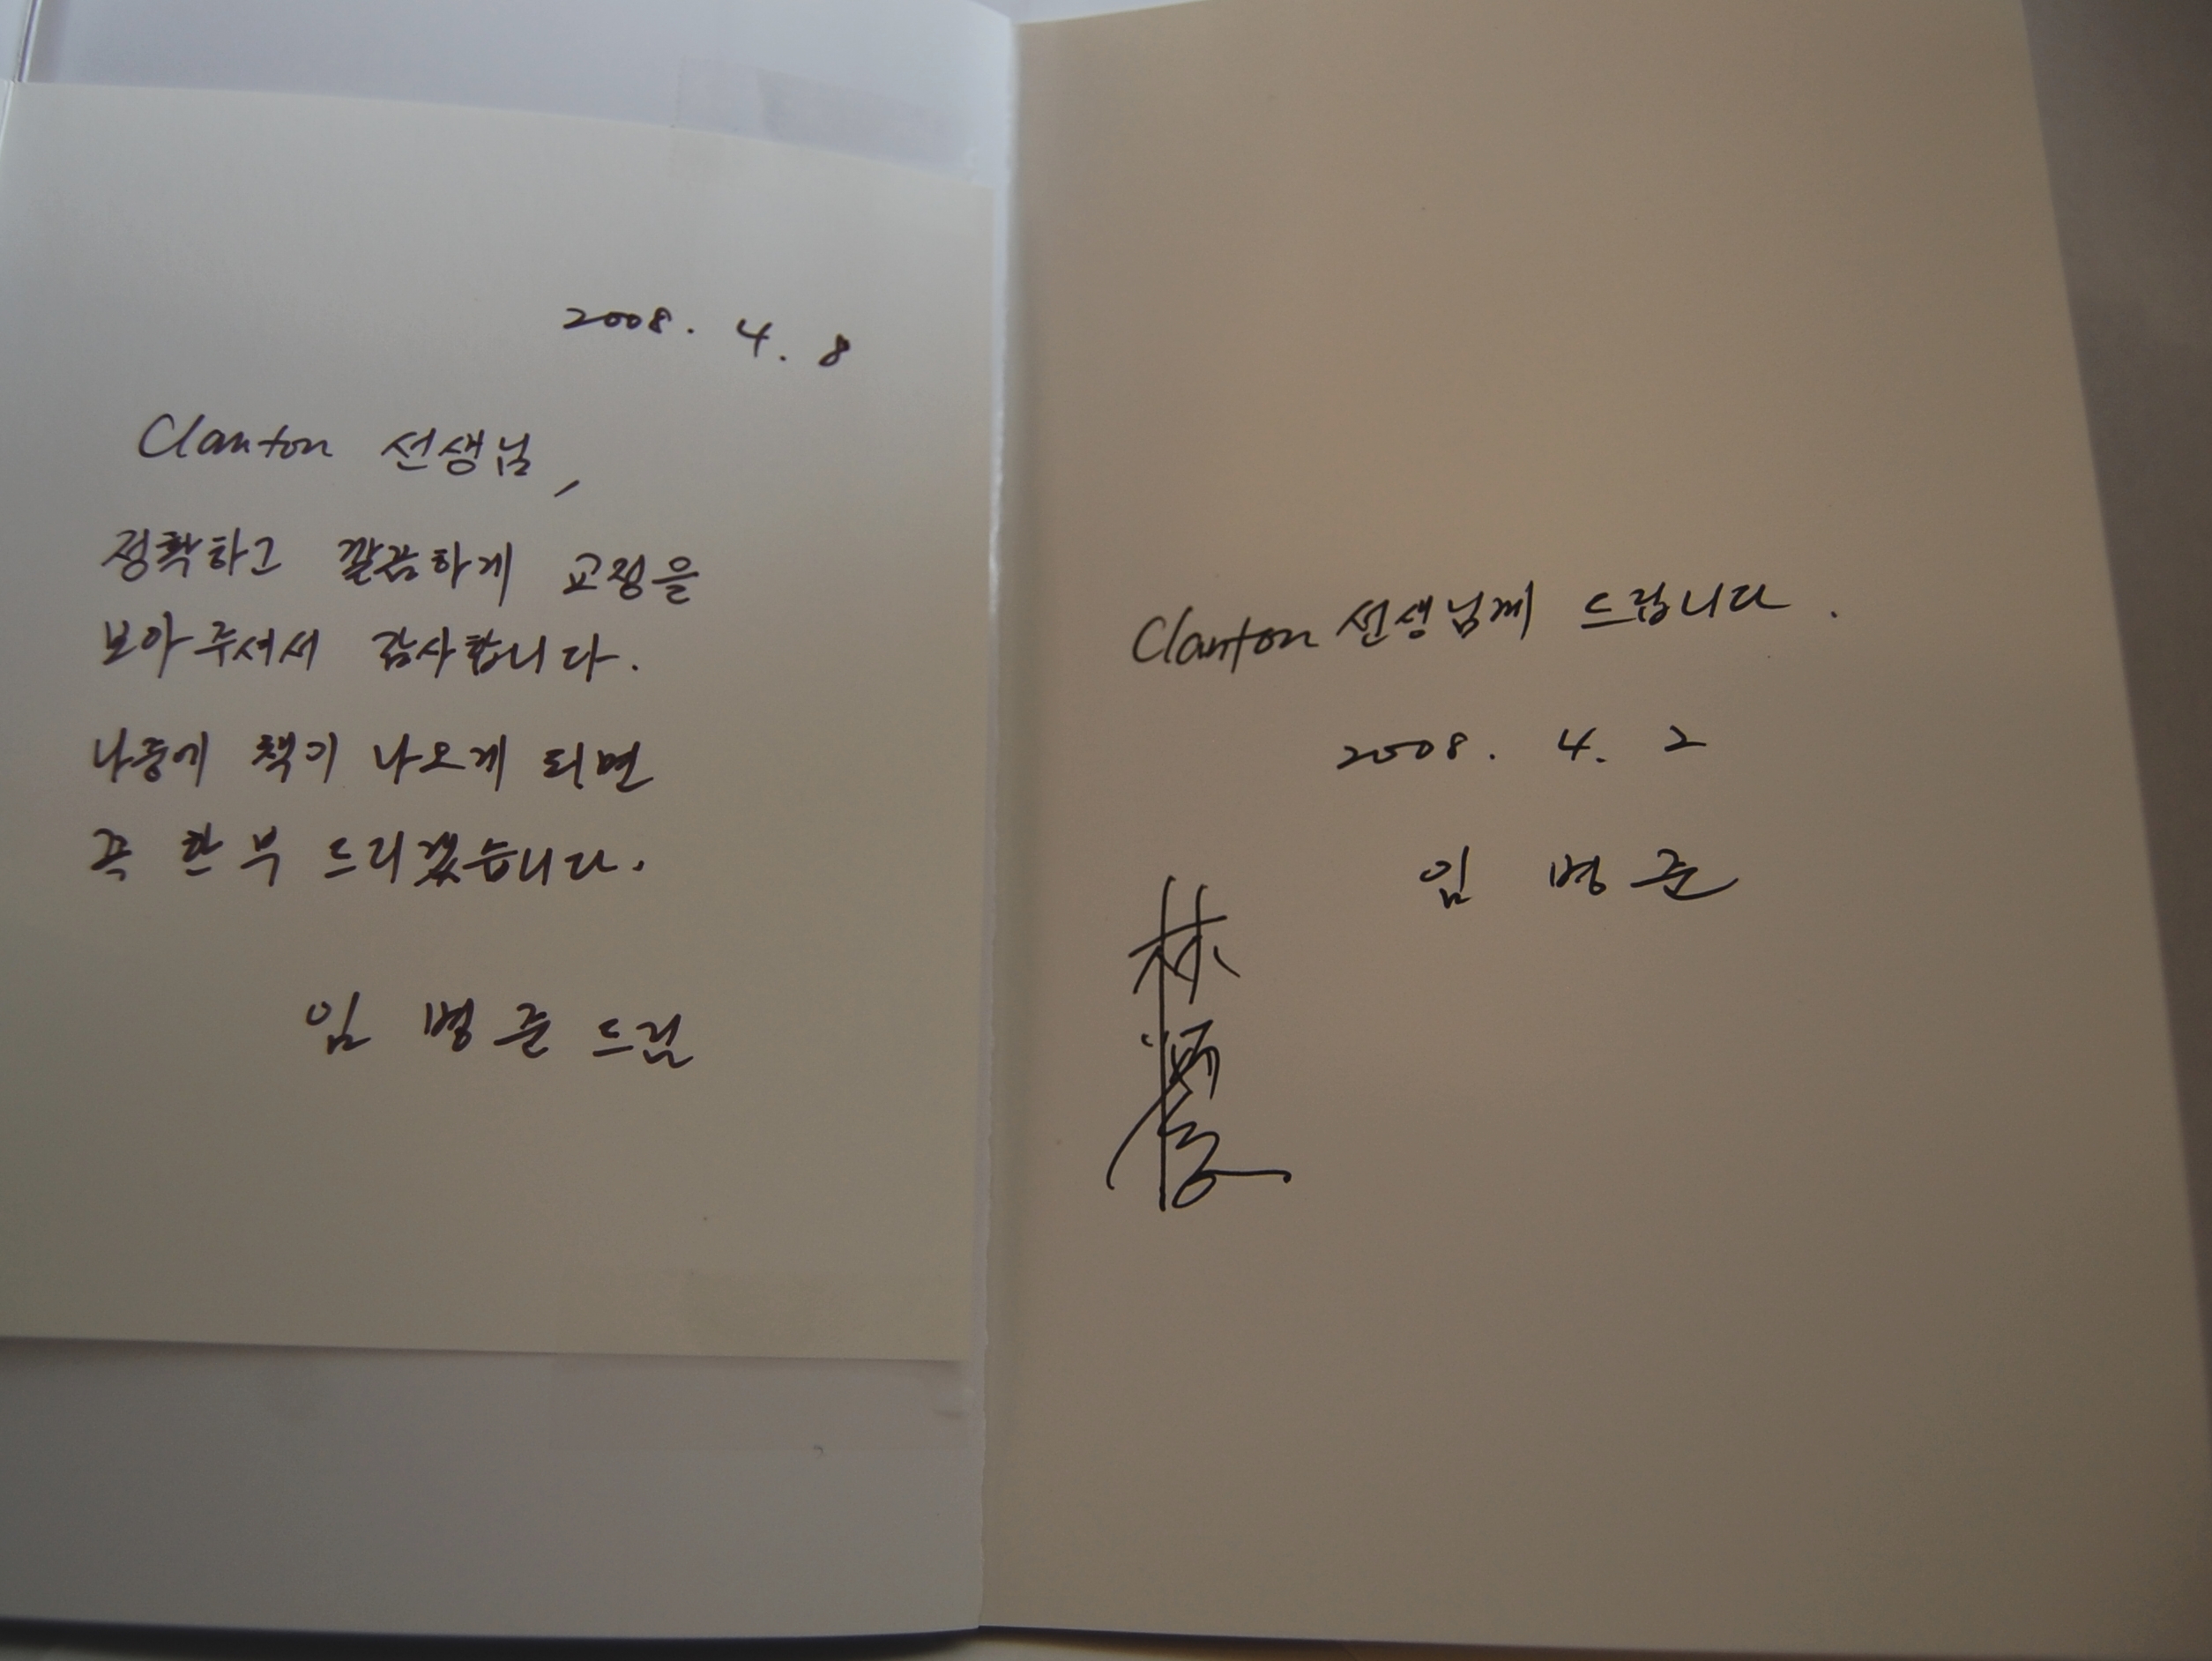 2008. 4. 8
Clanton 선생님,
정확하고 깔끔하게 교정을
보아주셔서 감사합니다.
나중에 책이 나오게 되면
꼭 한 부 드리겠습니다.
임 병 준 드림
Clanton 선생님께 드립니다.
2008. 4. 2
임 병 준
林